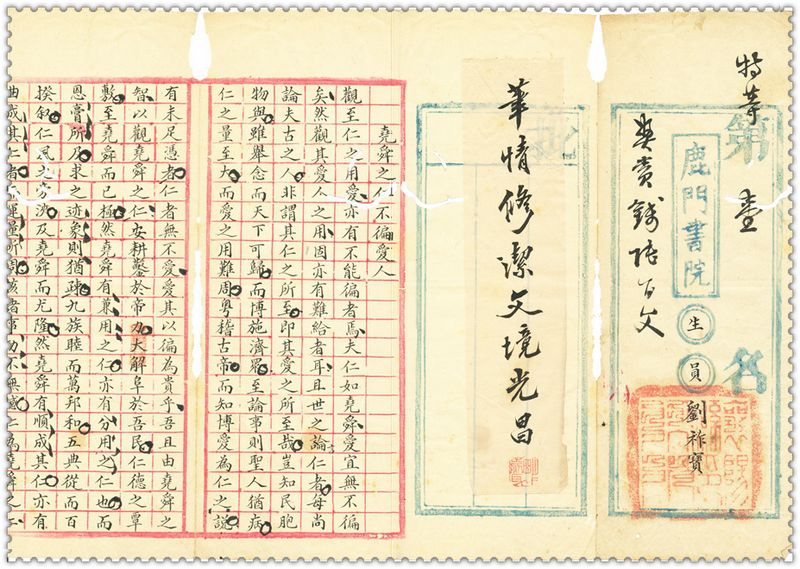 特等第壹名
奬賞錢陸百文
鹿門書院
生
員
劉祚寶
批
華情修潔文境光昌
堯舜之仁不徧愛人
觀至仁之用愛亦有不能徧者焉夫仁如堯舜愛宜無不徧
矣然觀其愛人之用固亦有難給者耳且世之論仁者每尚
論夫古之人非謂其仁之所至即其愛之所至哉豈知民胞
物與雖舉念而天下可歸而博施濟眾至論事則聖人猶病
仁之量至大而愛之用難周粵稽古帝而知博愛為仁之說
有未足憑者仁者無不愛愛其以徧為貴乎吾且由堯舜之
智以觀堯舜之仁安耕鑿於帝力大解阜於吾民仁德之覃
敷至堯舜而已極然堯舜有兼用之仁亦有分用之仁也而
恩膏所及求之迹象則猶疎九族睦而萬邦和五典從而百
揆敘仁風之旁流及堯舜而尤隆然堯舜有順成其仁亦有
曲成其仁者